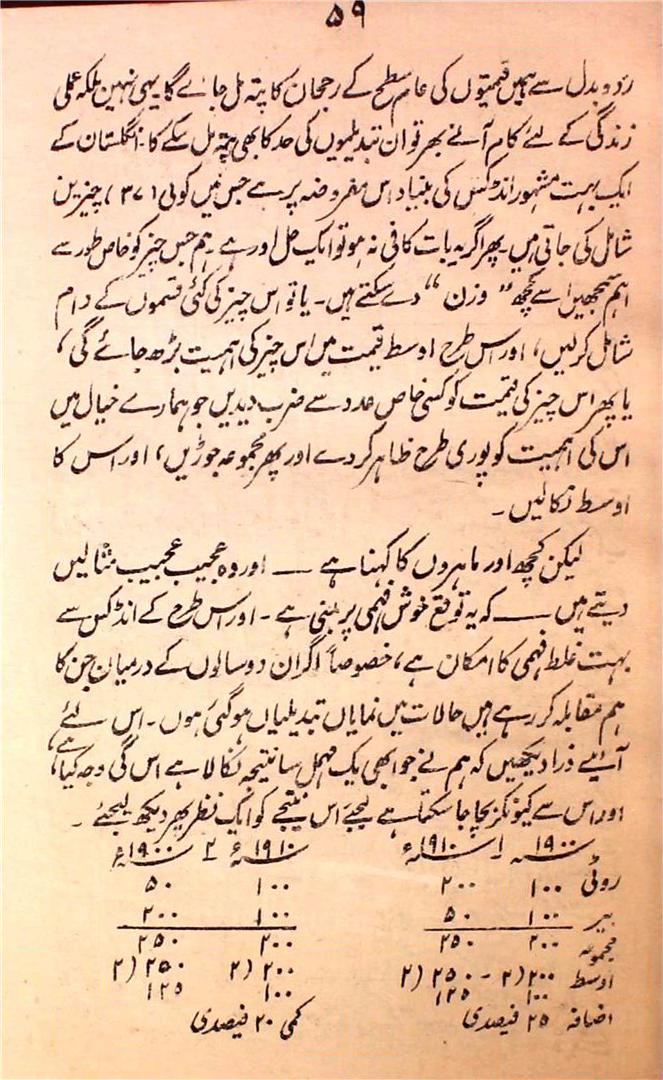 ۵۹
ردو بدل سے ہمیں قیمتوں کی عام سطح کے رجحان کا پتہ مل جائے گا یہی نہیں بلکہ عملی
زندگی کے لئے کام آئے بھر تو ان تبدیلیوں کی حد کا بھی پتہ مل سکے گا۔ انگلستان کے
ایک بہت مشہور انڈکس کی بنیاد اس مفروضہ پر ہے جس میں کوئی ۳۷۱، چیزیں
شامل کی جاتی ہیں۔ پھر اگر یہ بات کافی نہ ہو تو ایک حل اور ہے۔ ہم جس چیز کو خاص طور سے
اہم سمجھیں اسے کچھ " وزن " دے سکتے ہیں۔ یا تو اس چیز کی کئی قسموں کے دام
شامل کرلیں، اور اس طرح اوسط قیمت میں اس چیز کی اہمیت بڑھ جائے گی،
یا پھر اس چیز کی قیمت کو کسی خاص عدد سے ضرب دیدیں جو ہمارے خیال میں
اس کی اہمیت کو پوری طرح ظاہر کر دے اور پھر مجموعہ جوڑیں، اور اس کا
اوسط نکالیں۔
لیکن کچھ اور ماہروں کا کہنا ہے — اور وہ عجیب عجیب مثالیں
دیتے ہیں — کہ یہ توقع خوش فہمی پر مبنی ہے۔ اور اس طرح کے انڈکس سے
بہت غلط فہمی کا امکان ہے، خصوصاً اگر ان دو سالوں کے درمیان جن کا
ہم مقابلہ کر رہے ہیں حالات میں نمایاں تبدیلیاں ہوگئی ہوں۔ اس لئے
آئیے ذرا دیکھیں کہ ہم نے جو ابھی یک مہمل سا نتیجہ نکالا ہے اس کی وجہ کیا ہے،
اور اس سے کیونکر بچا جا سکتا ہے لیجئے اس نتیجے کو ایک نظر پھر دیکھ لیجئے۔
۱۹۰۰ء ۱ ۱۹۱۰ء ۱۹۱۰ء ۲ ۱۹۰۰ء
روٹی ۱۰۰ ۲۰۰ ۱۰۰ ۵۰
بیر ۱۰۰ ۵۰ ۱۰۰ ۲۰۰
مجموعہ ۲۰۰ ۲۵۰ ۲۰۰ ۲۵۰
اوسط ۲)۲۰۰ - ۲)۲۵۰ ۲)۲۰۰ ۲)۲۵۰
۱۰۰ ۱۲۵ ۱۰۰ ۱۲۵
اضافہ ۲۵ فیصدی کمی ۲۰ فیصدی